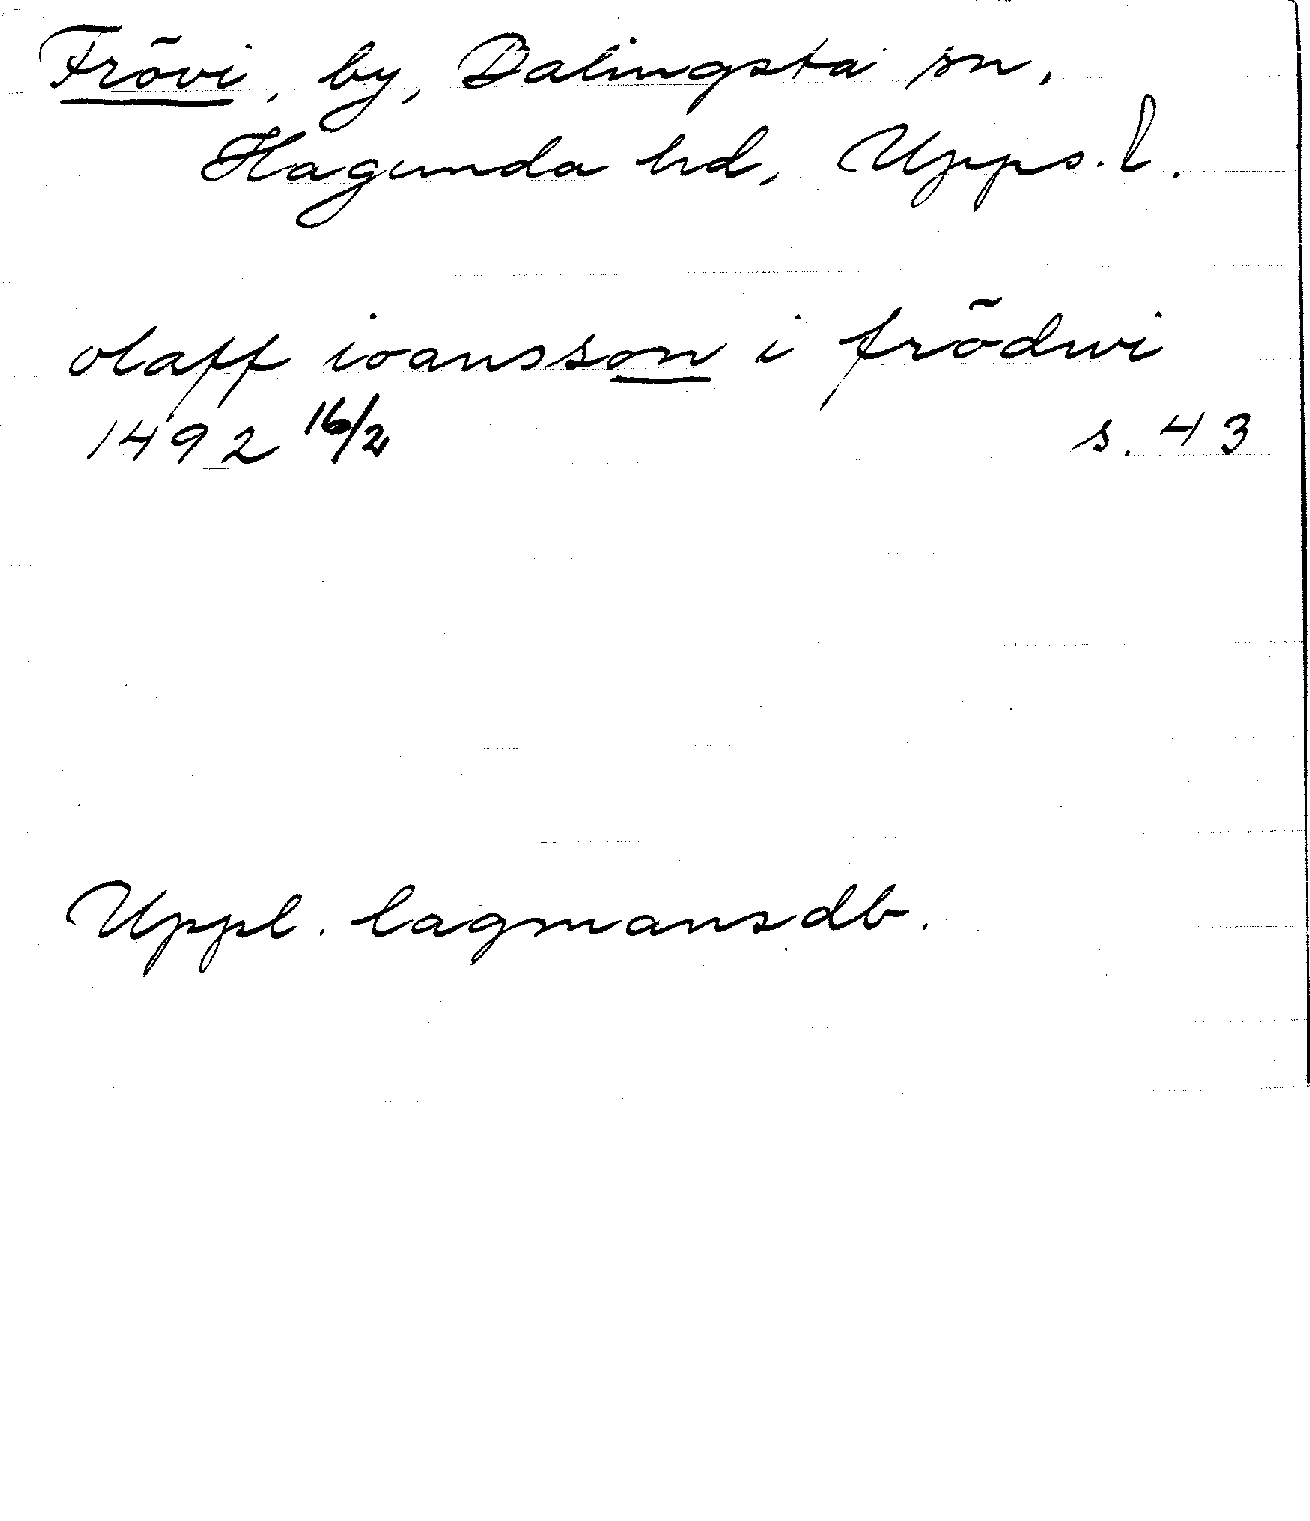 Frövi, by, Dalingsta sn,
Hagunda hd, Upps. l.
olaff ioansson i frödwi
1492 16/2 s. 43
Uppl. lagmansdb.